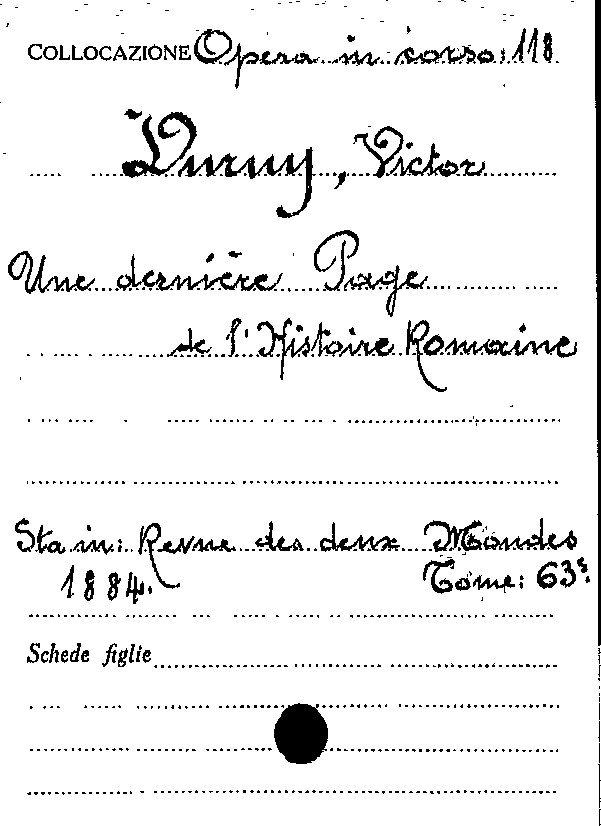 COLLOCAZIONE Opera in corso: 118
Duruy, Victor
Une dernière Page
de l'Histoire Romaine
Sta in: Revue des deux Mondes
1884. Tome: 63
Schede figlie